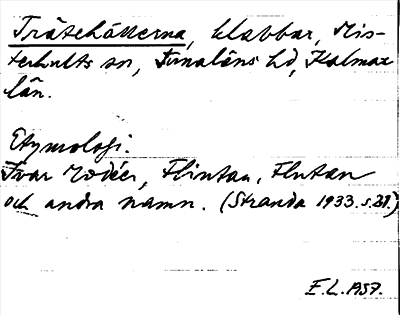 Trätehällerna, klabbar, Mis-
terhults sn, Tunaläns hd, Kalmar
län.
Etymologi.
Ivar Modéer, Flintan, Flutan
och andra namn. (Stranda 1933. s.21.)
E.L. 1957.